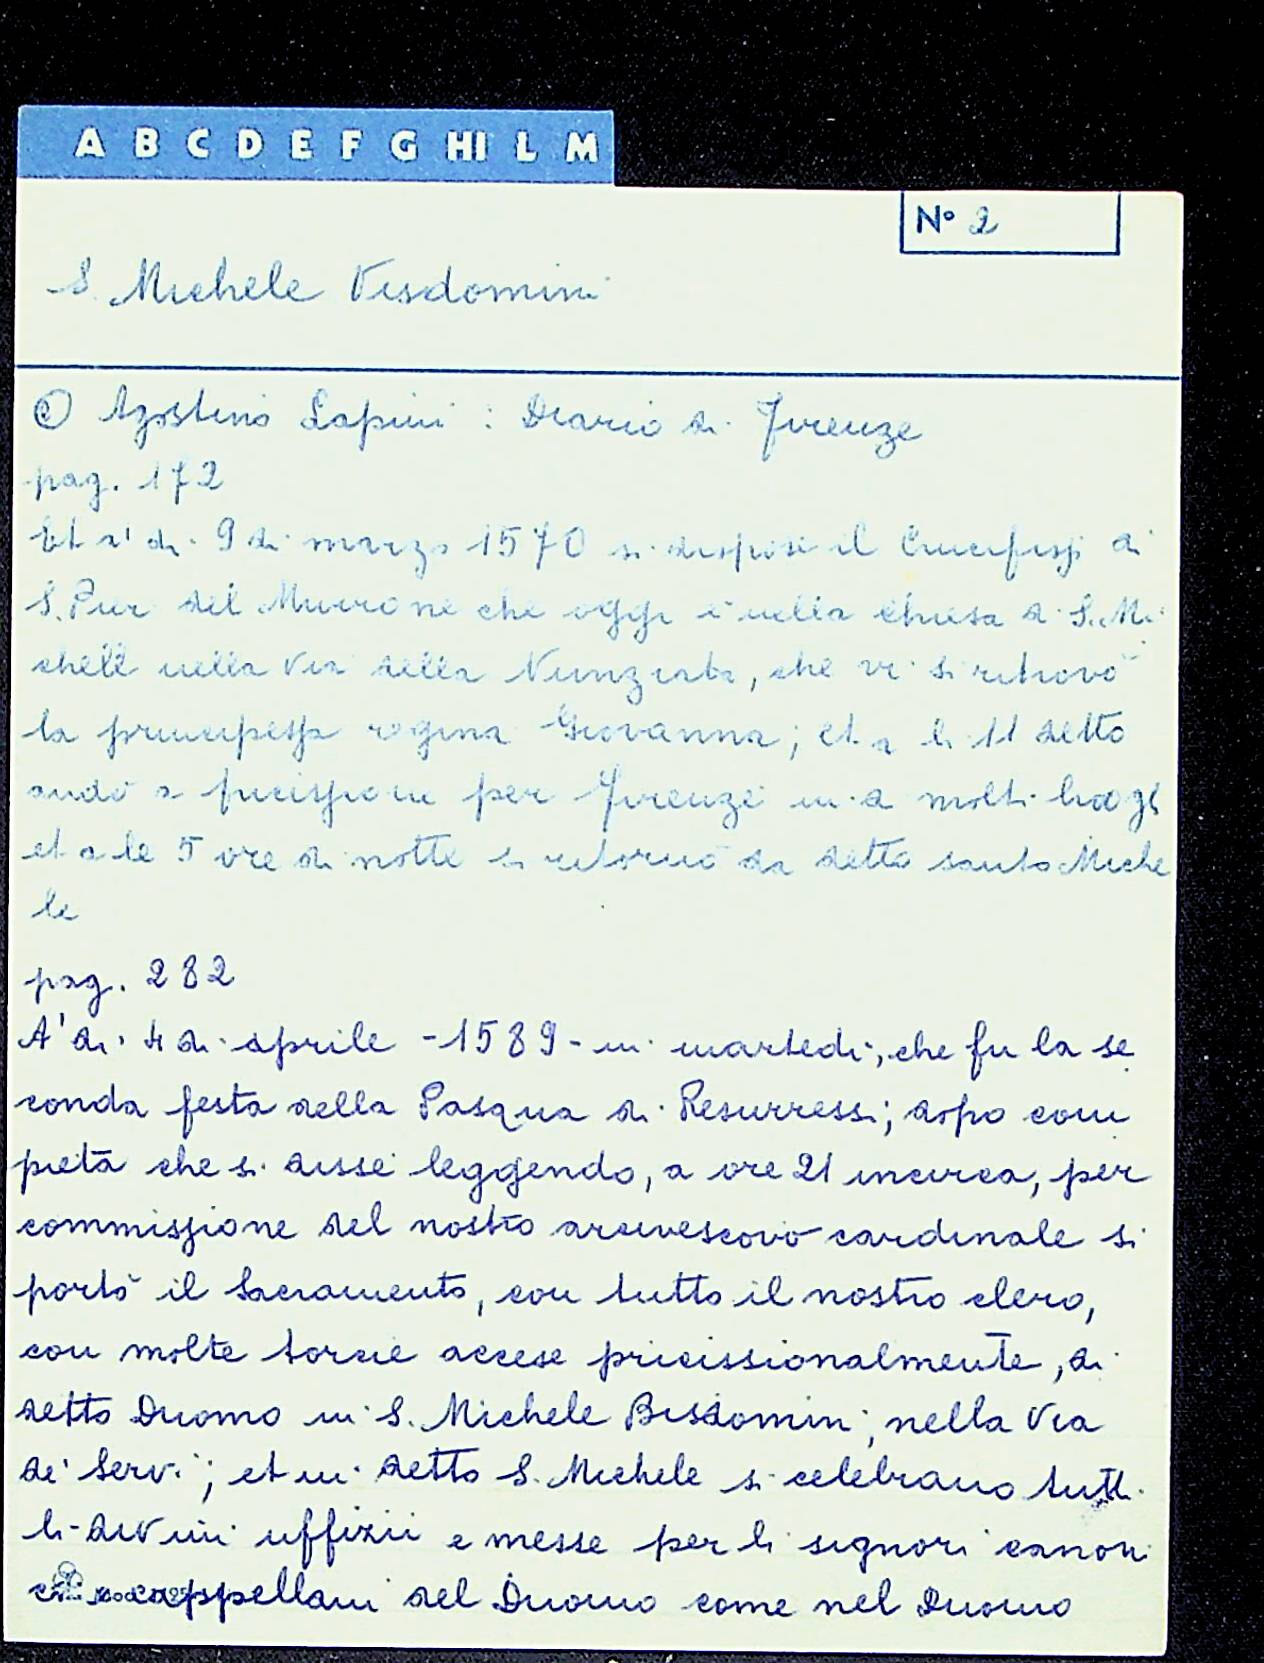 A B C D E F G HI L M
N° 2
S. Michele Visdomini
C) Agostino Lapini : Diario di Firenze
pag. 172
Et a' di 9 di marzo 1570 si dispose il Crucifisso di
S. Pier del Murrone che oggi è nella chiesa di S. Mi
chele nella via della Nunziata, che vi si ritrovò
la principessa regina Giovanna; et a li 11 detto
andò a pricissione per Firenze in a molti luogi
et a le 5 ore di notte si ritornò da detto santo Miche
le
pag. 282
A' di 4 di aprile - 1589 - in martedì, che fu la se
conda festa della Pasqua di Resurressi; dopo com
pieta che si disse leggendo, a ore 21 incirca, per
commissione del nostro arcivescovo cardinale si
portò il Sacramento, con tutto il nostro clero,
con molte torcie accese pricissionalmente, di
detto Duomo in S. Michele Bisdomini, nella Via
de' Servi; et in detto S. Michele si celebrano tutti
li divini uffizii e messe per li signori canoni
ci e cappellani del Duomo come nel Duomo